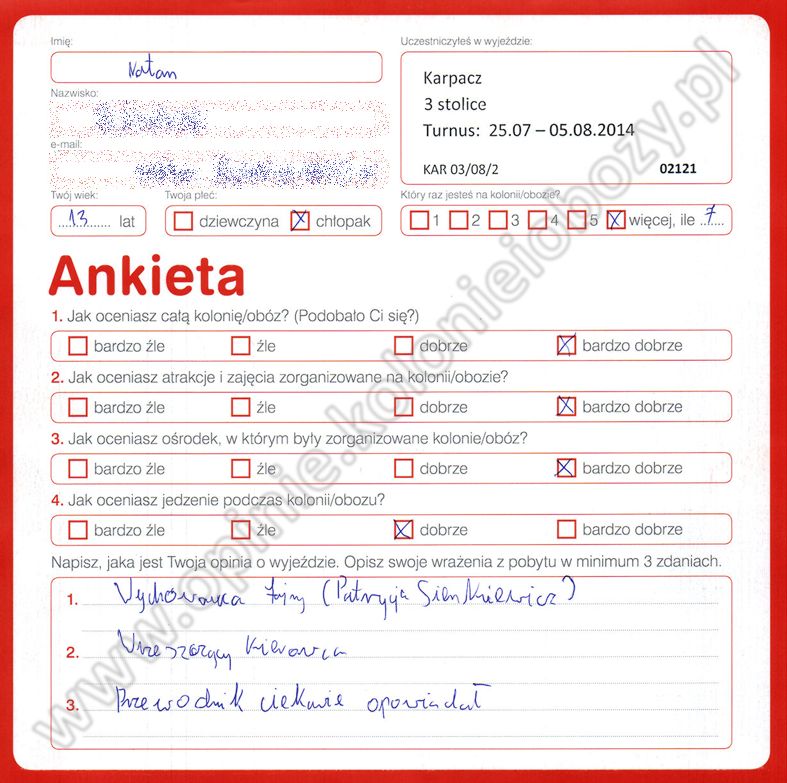 Imię:
Natan
Uczestniczyłeś w wyjeździe:
Karpacz
3 stolice
Turnus: 25.07 – 05.08.2014
KAR 03/08/2 02121
Nazwisko:
e-mail:
Twój wiek: Twoja płeć: Który raz jesteś na kolonii/obozie?
13 lat dziewczyna chłopak 1 2 3 4 5 więcej, ile 7
Ankieta
1. Jak oceniasz całą kolonię/obóz? (Podobało Ci się?)
bardzo źle źle dobrze bardzo dobrze
2. Jak oceniasz atrakcje i zajęcia zorganizowane na kolonii/obozie?
bardzo źle źle dobrze bardzo dobrze
3. Jak oceniasz ośrodek, w którym były zorganizowane kolonie/obóz?
bardzo źle źle dobrze bardzo dobrze
4. Jak oceniasz jedzenie podczas kolonii/obozu?
bardzo źle źle dobrze bardzo dobrze
Napisz, jaka jest Twoja opinia o wyjeździe. Opisz swoje wrażenia z pobytu w minimum 3 zdaniach.
1. Wychowawca fajny (Patrycja Sienkiewicz)
2. Wrzeszczący kierowca
3. Przewodnik ciekawie opowiadał
www.opinie.kolonieiobozy.pl